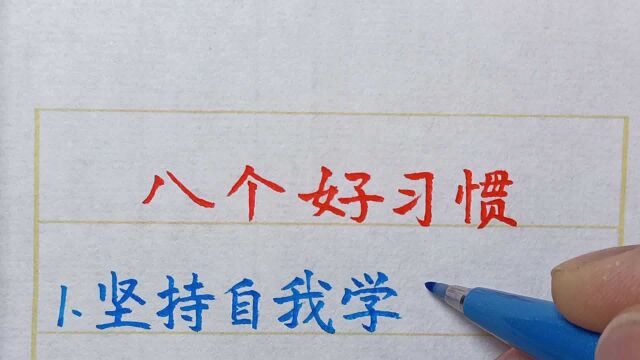 八个好习惯
1.坚持自我学